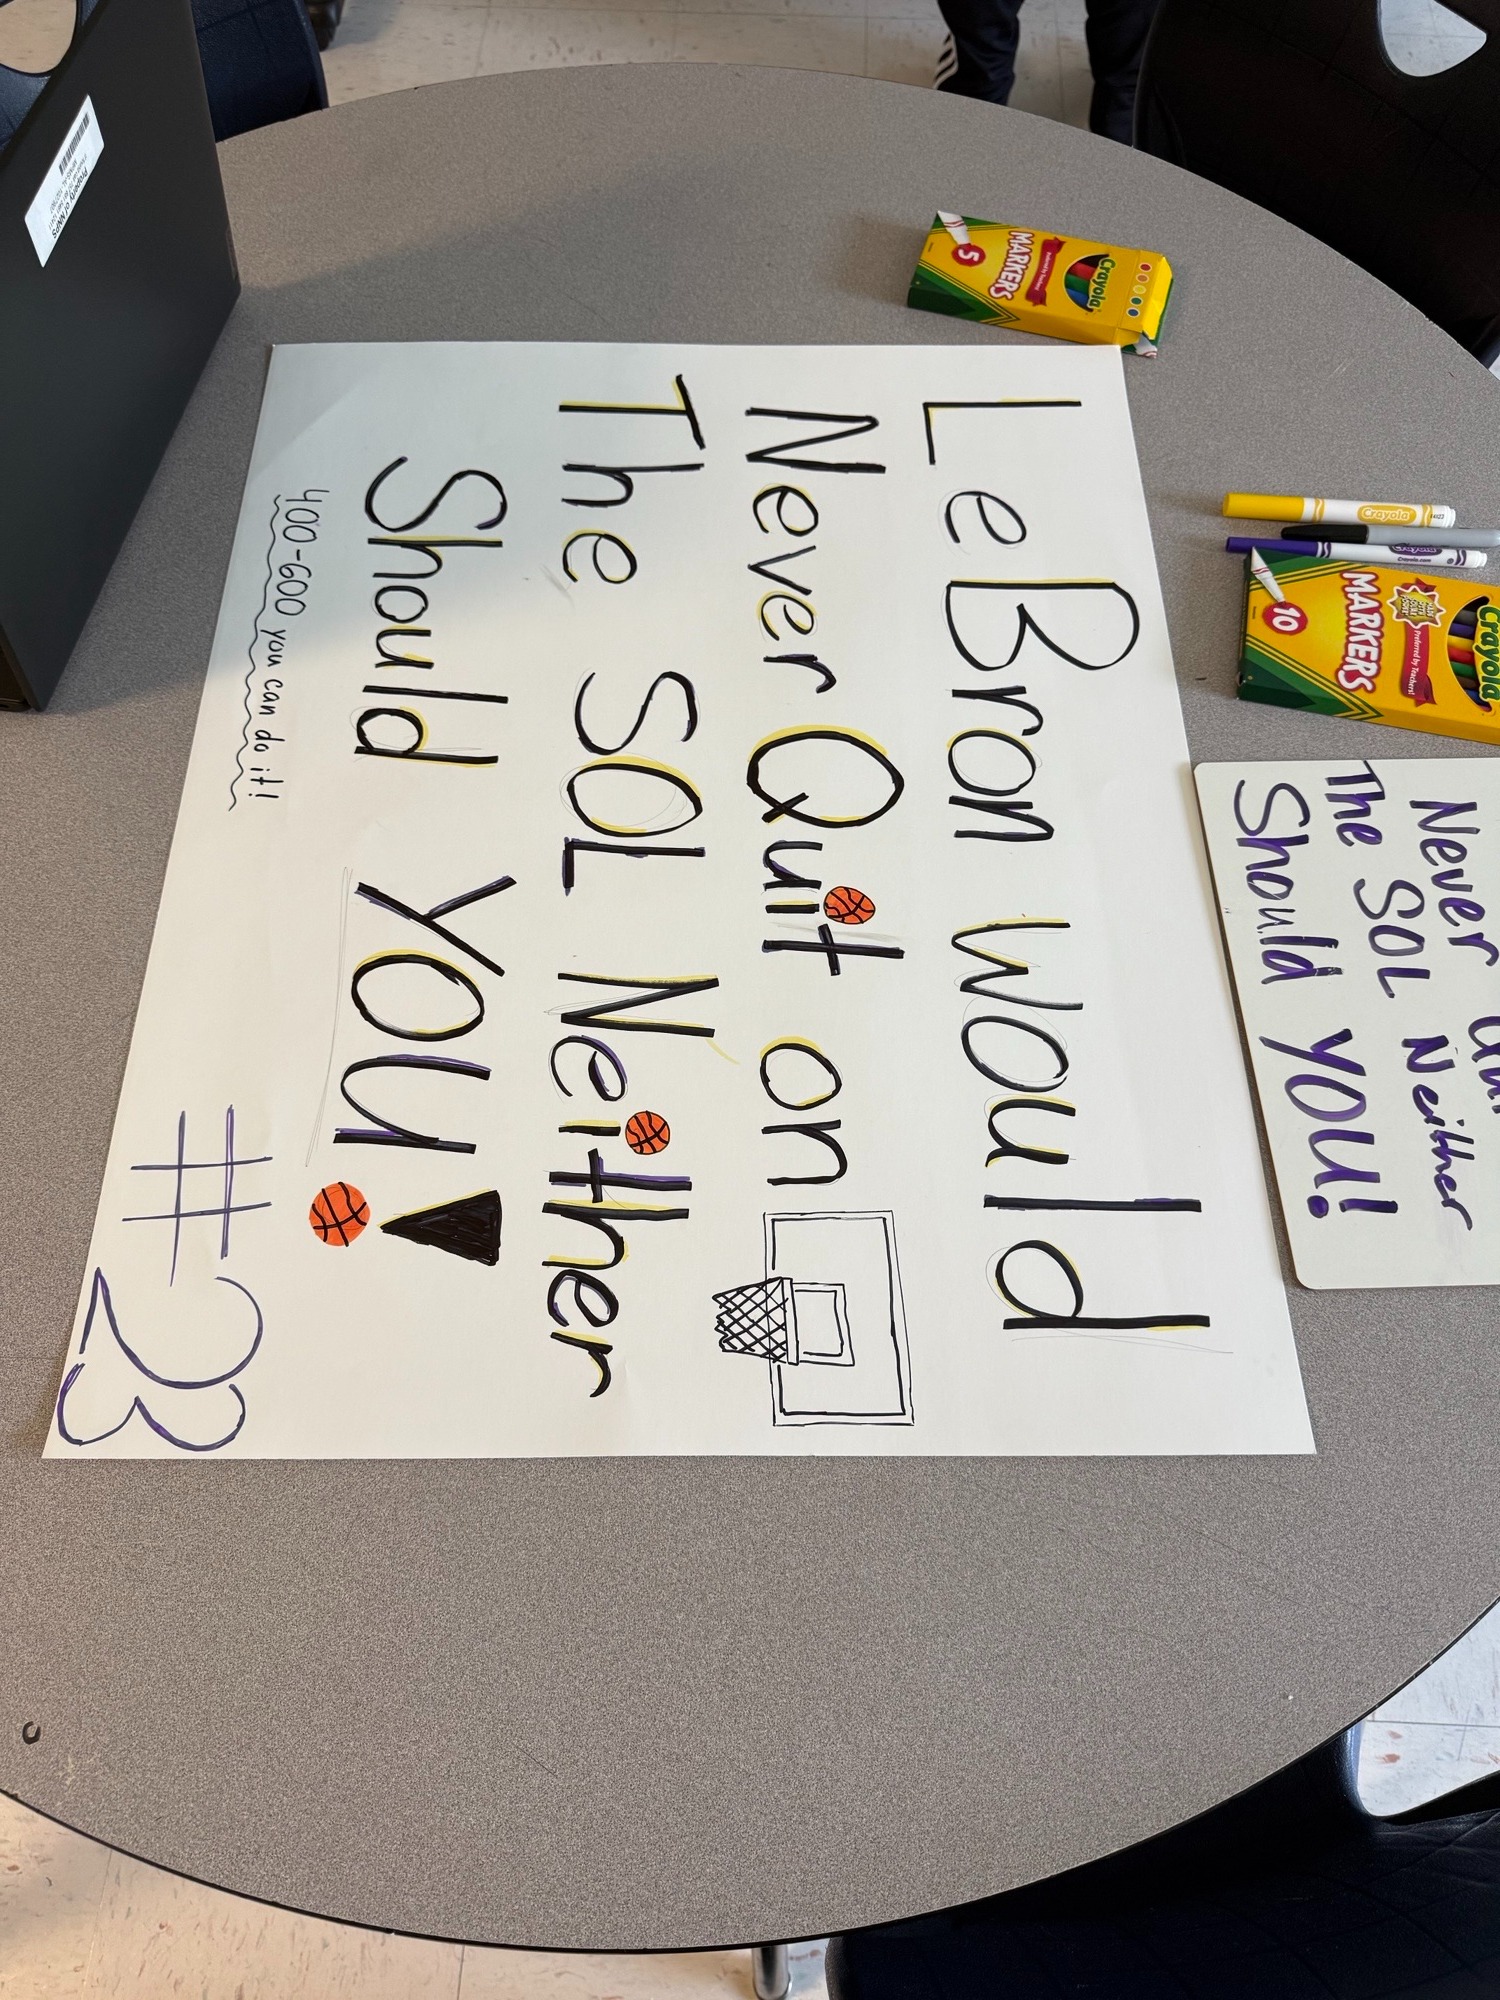 LeBron would
Never Quit on
The SOL Neither
Should YOU!
400-600 you can do it!
#23
Never
The SOL Neither
Should YOU!
Crayola
MARKERS
5
Crayola
Crayola
Crayola
MARKERS
10
Preferred by Teachers!
Property of NNPS